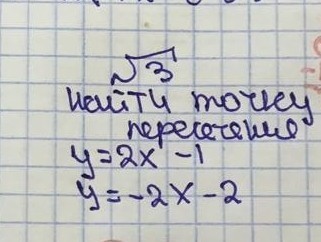 √3
Найти точку
пересечения
y=2x -1
y=-2x-2